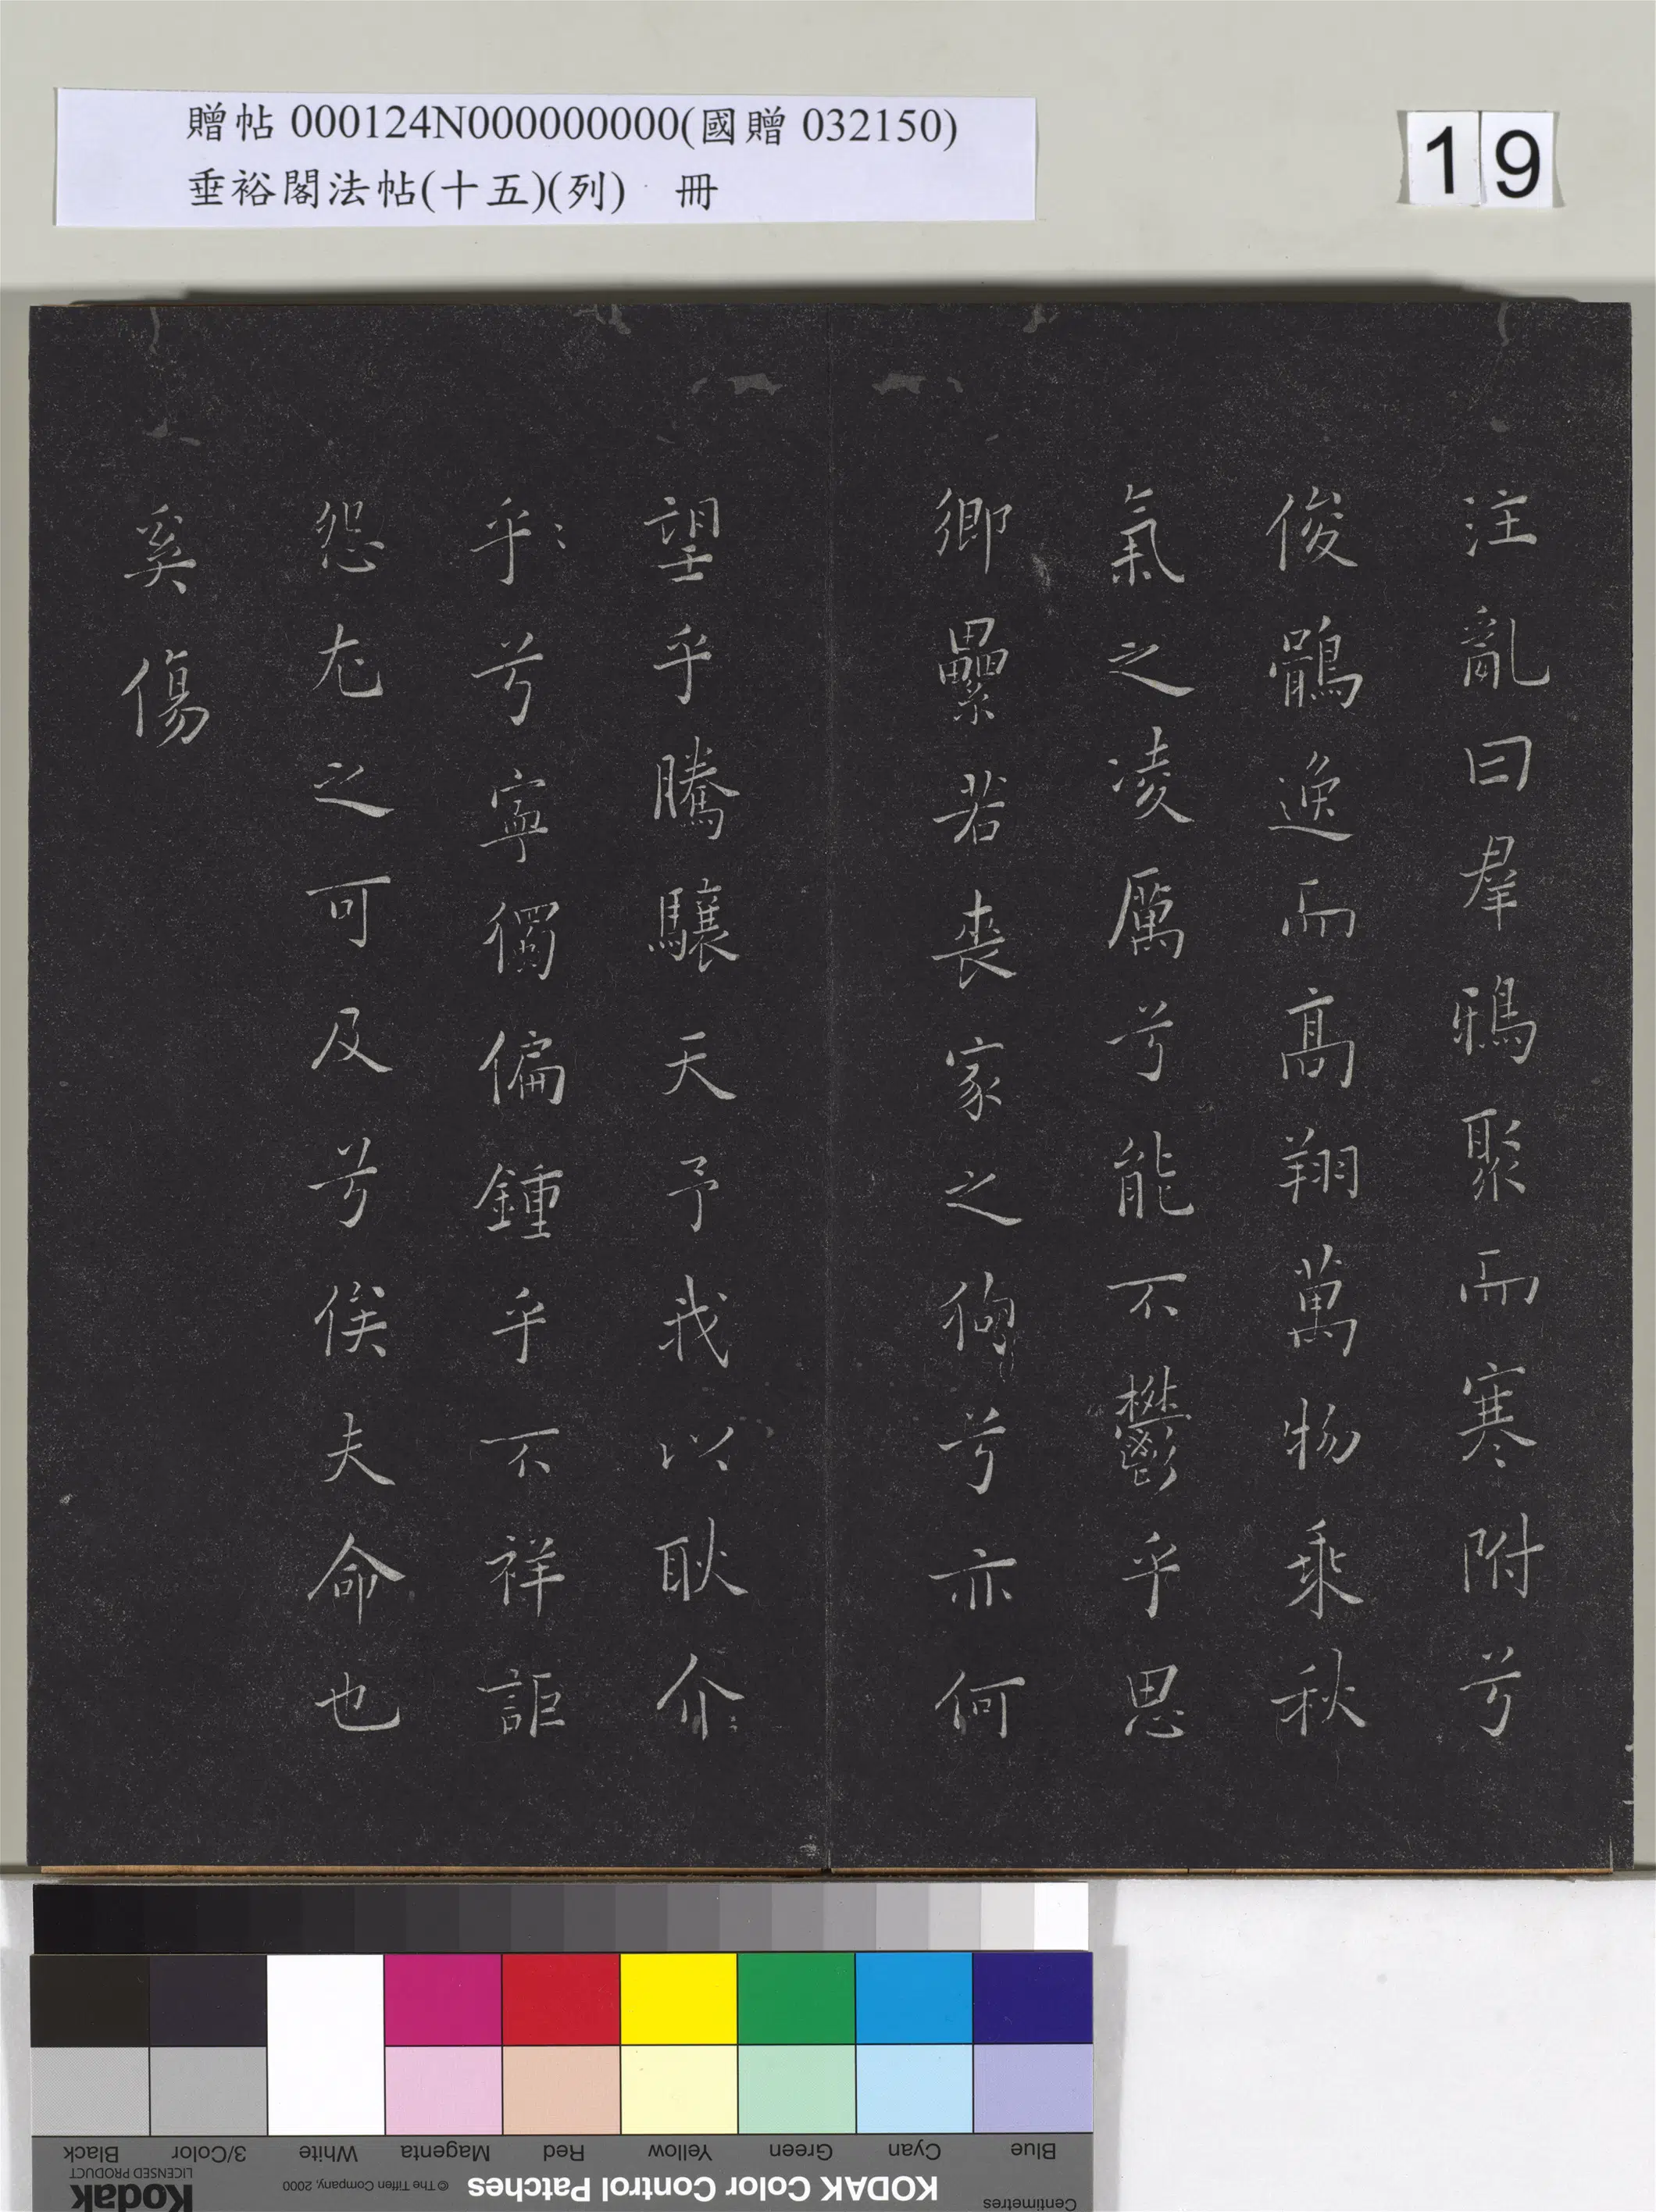 贈帖 000124N000000000(國贈 032150)
垂裕閣法帖(十五)(列) 冊
19
注亂曰羣鴉聚而寒附兮
俊鶻逸而高翔萬物乘秋
氣之凌厲兮能不鬱乎思
鄉纍若喪家之狗兮亦何
望乎騰驤天予我以耿介〻
乎〻兮寧獨偏鍾乎不祥詎
怨尤之可及兮俟夫命也
奚傷
Blue
Cyan
Green
Yellow
Red
Magenta
White
3/Color
Black
Centimetres
KODAK Color Control Patches
© The Tiffen Company, 2000
Kodak
LICENSED PRODUCT